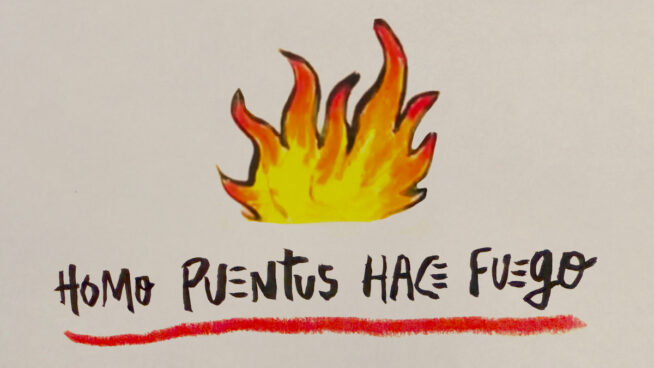 HOMO PUENTUS HACE FUEgO